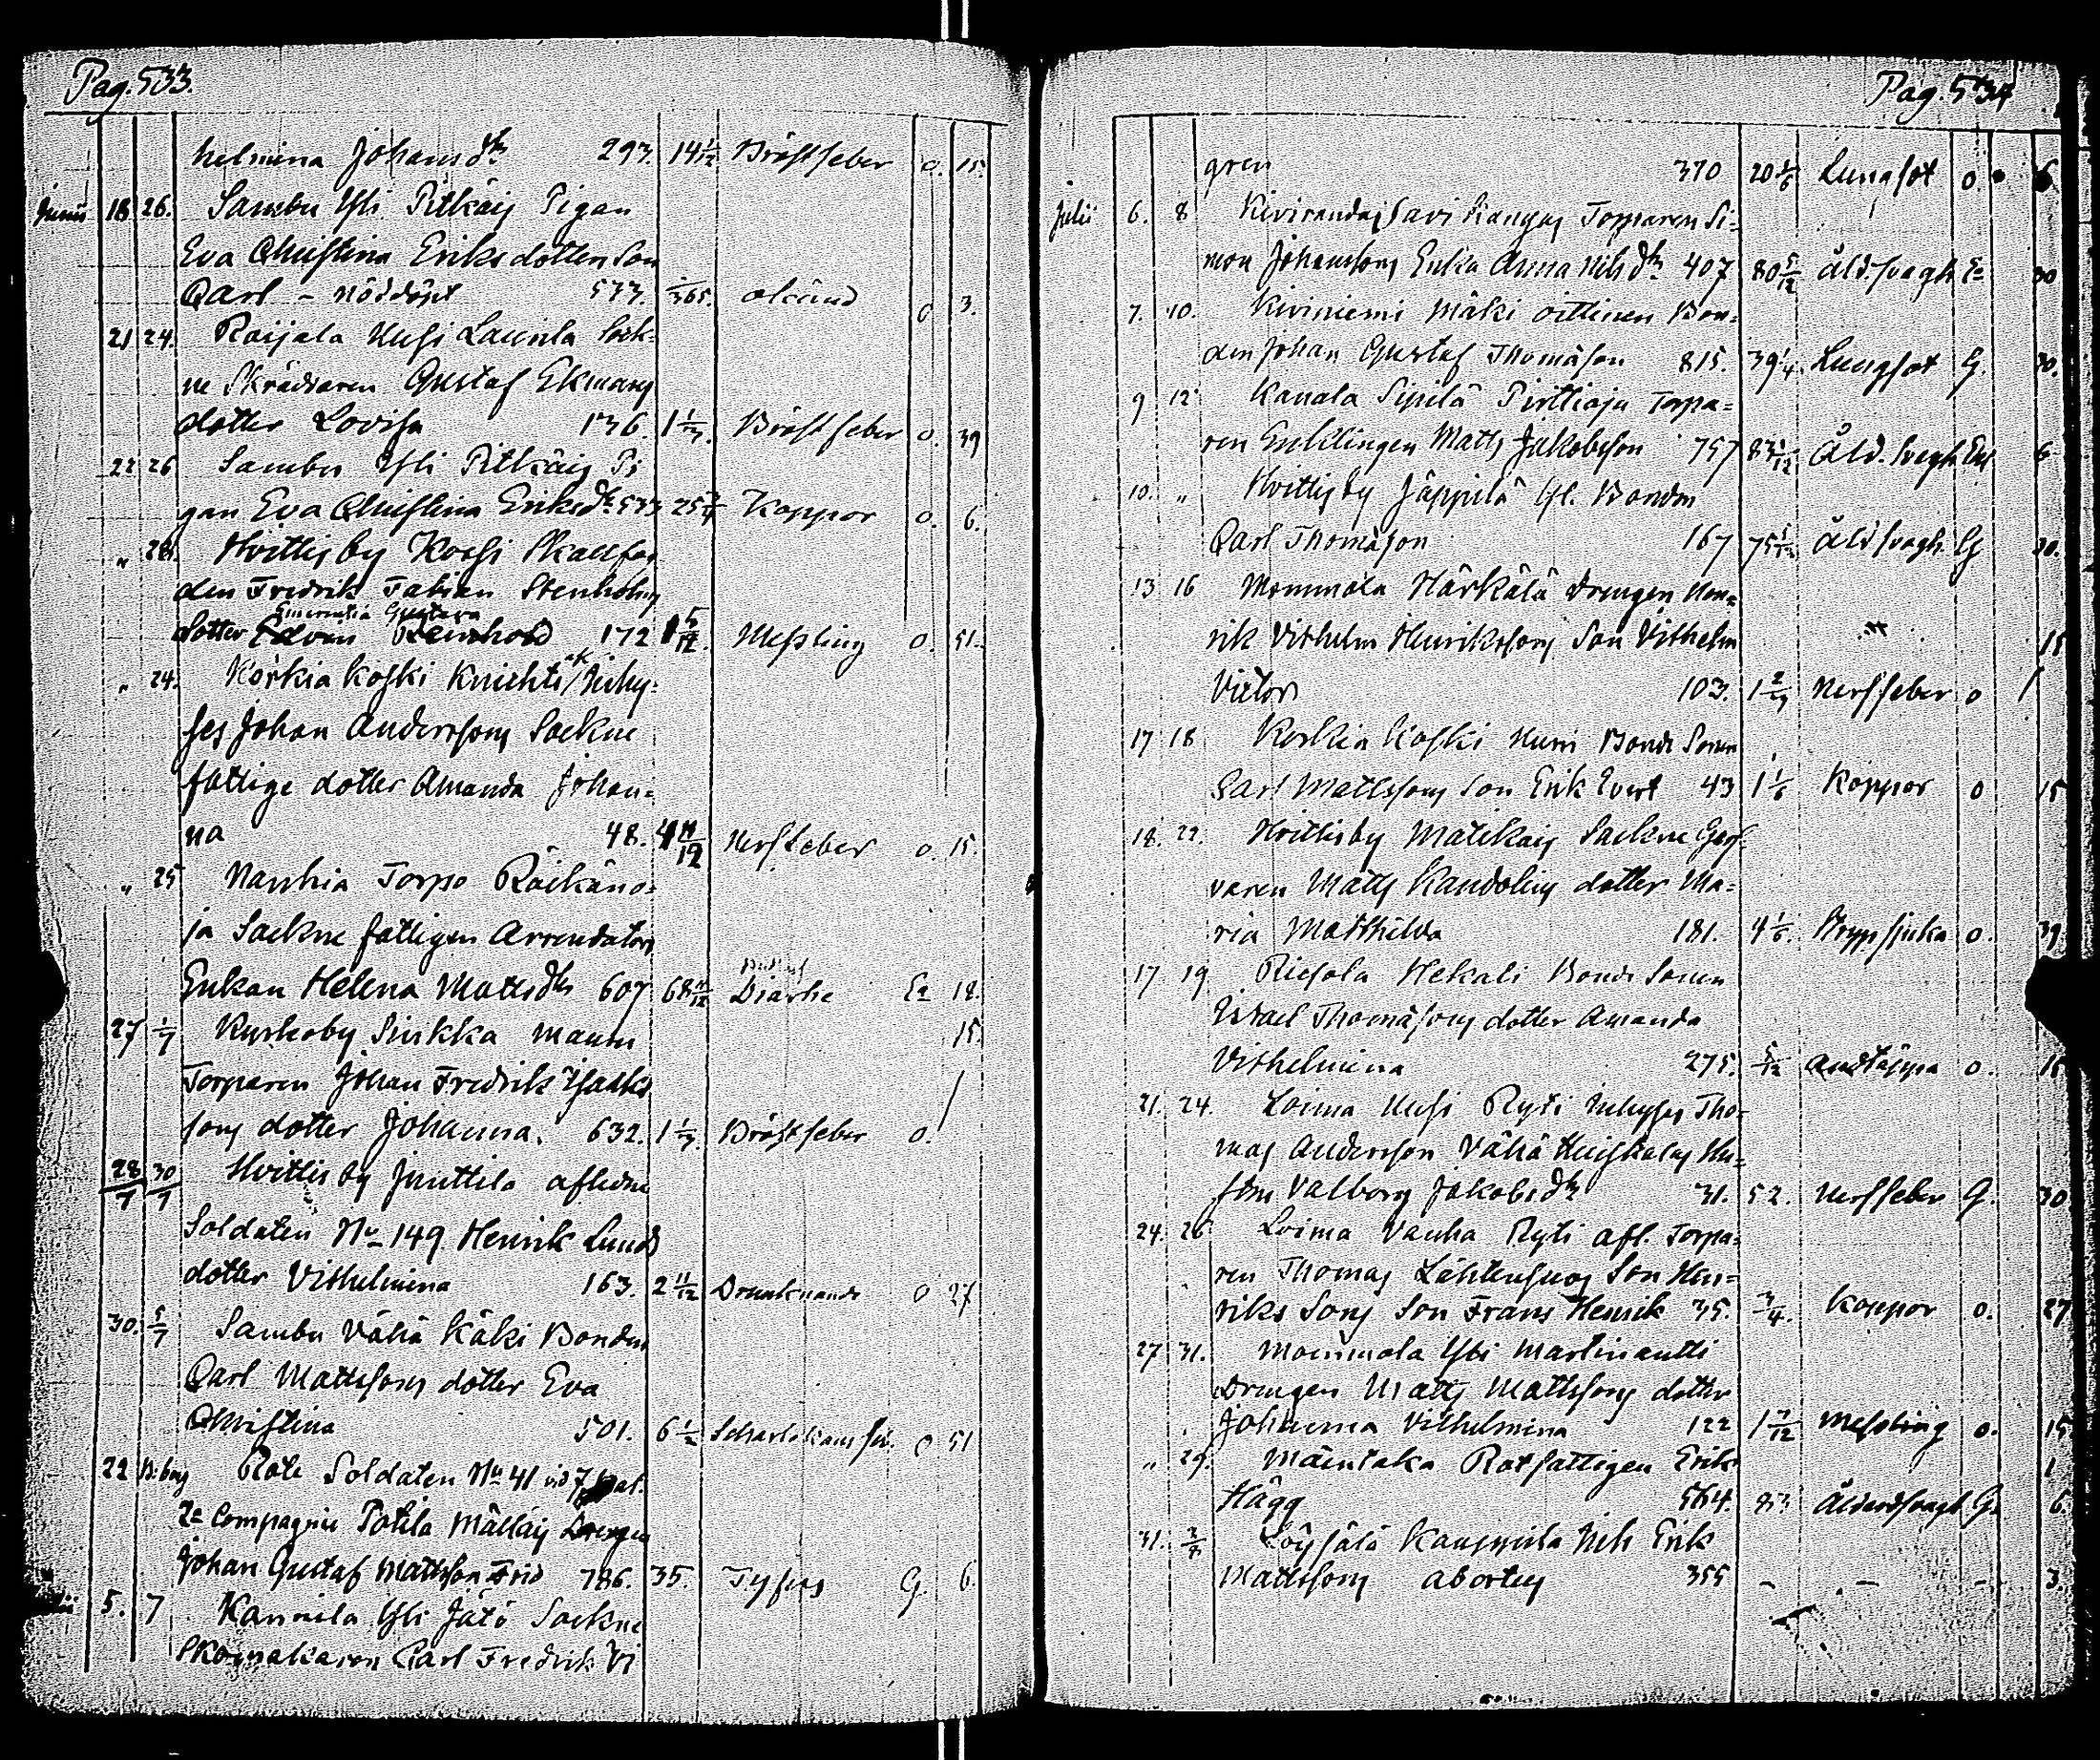 Pag. 533.
helmina Johansdtr 293. 14 1/12 Bröstfeber o. 15.
Junii 18 26. Sambu Yli Pitkäis Pigan
Eva Christina Eriksdotter Son
Carl - nöddöpt 573. /365. okänd o 3.
21 24. Raijala Uusi Laurila Sock=
ne Skräddaren Gustaf Ekmans
dotter Lovisa 136. 1 1/3. Bröstfeber o. 39
22 26 Sambu Yli Pitkäis Pi
gan Eva Christina Eriksdr 573 25 Koppor o. 6.
" 28. Hvittis by Kossi
den Fredrik Fabian Stenholms
Gustava
dotter Edvin Reinhold 172 1 5/12. Messling o. 51.
" 24. Korkia koski Knichti / Inhy=
ses Johan Anderssons Sockne
fattige dotter Amanda Johan=
na 48. 4 11/12 Nerffeber o. 15.
" 25 Narrhia Torpo Räikäno=
ja Sockne fattigen Arrendators
Enkan Helena Mattsdtr 607 68 11/12 Diarhe E= 18.
27 1/7 Kurkeby Sirkka Maun 15.
Torparen Johan Fredrik Isaaks
sons dotter Johanna. 632. 1 1/3. Bröstfeber o. /
28/7 30/7 Hvittis by Junttila afskedne
Soldaten No 149 Henrik Lunds
dotter Vilhelmina 163. 2 11/12 Drunknande o 27
30. 5/7 Sambu Vähä Käki Bonden
Carl Mattssons dotter Eva
Christina 501. 6 1/2 Scharlakans feb. o 51
22 Rote Soldaten No 41 vid 7 Bat.
2= Compagnie Potila Mälläis Drengen
Johan Gustaf Mattsson Frid 786. 35. Tyfus G. 6.
5. 7 Karhula Yli Jätö Sockne
Skomakaren Carl Fredrik Vi
Pag. 534
gren 370 20 1/6 Lungsot o. 6
Julii 6. 8 Kiviranda Savi Kangas Torparen Si=
mon Johanssons Enka Anna Nilsdtr 407 80 5/12 Åld. svagh E= 30
7. 10. Kiviniemi Mäki oittinen Bon=
den Johan Gustaf Thomasson 815. 39 1/4. Lungsot G. 30.
9 12 Kanala Sipilä Pirttioja Torpa=
ren Enklingen Matts Jakobsson 757 83 1/12 Åld. svagh Enk 6
10. " Hvittis by Jäppilä Gl. Bonden
Carl Thomasson 167 75 1/12 Åld svagh. G 30.
13 16 Mommola Härkälä Drengen Hen=
rik Vilhelm Henrikssons Son Vilhelm 15
Victor 103. 1 2/3 Nerffeber o /
17 18 Korkia Koski Uusi Bonde Sonen
Carl Mattssons Son Erik Evert 43 1 1/6 Koppor o 15
18. 22. Hvittis by Matikais Sockne Garf
varen Matts Randelins dotter Ma=
ria Mathilda 181. 4 1/6. Strypsjuka o. 39
17 19 Riesola Hekali Bonde Sonen
Israel Thomassons dotter Amanda
Vilhelmina 275. 5/12 Andtäppa o. 15
21. 24. Loima Uusi Ryti Inhyses Tho=
mas Andersson Vähä Huishalas Hu=
stru Valborg Jakobsdtr 31. 52. Nerffeber G. 30
24. 26 Loima Vanha Ryti afl. Torpa=
ren Thomas Lähteensuos Son Hen=
riks Sons Son Frans Henrik 35. 3/4. Koppor o. 27
27 31. Mommola Yli Martinantti
Drengen Matts Mattssons dotter
Johanna Vilhelmina 122 1 7/12 Messling o. 15
" 29. Mäentaka Rotfattigen Erik
Hägg 564. 83 Ålderdsvagh G. 6
31. 2/8 Löysälä Kauppila Nils Erik
Mattssons abortus 355 - - - 3.